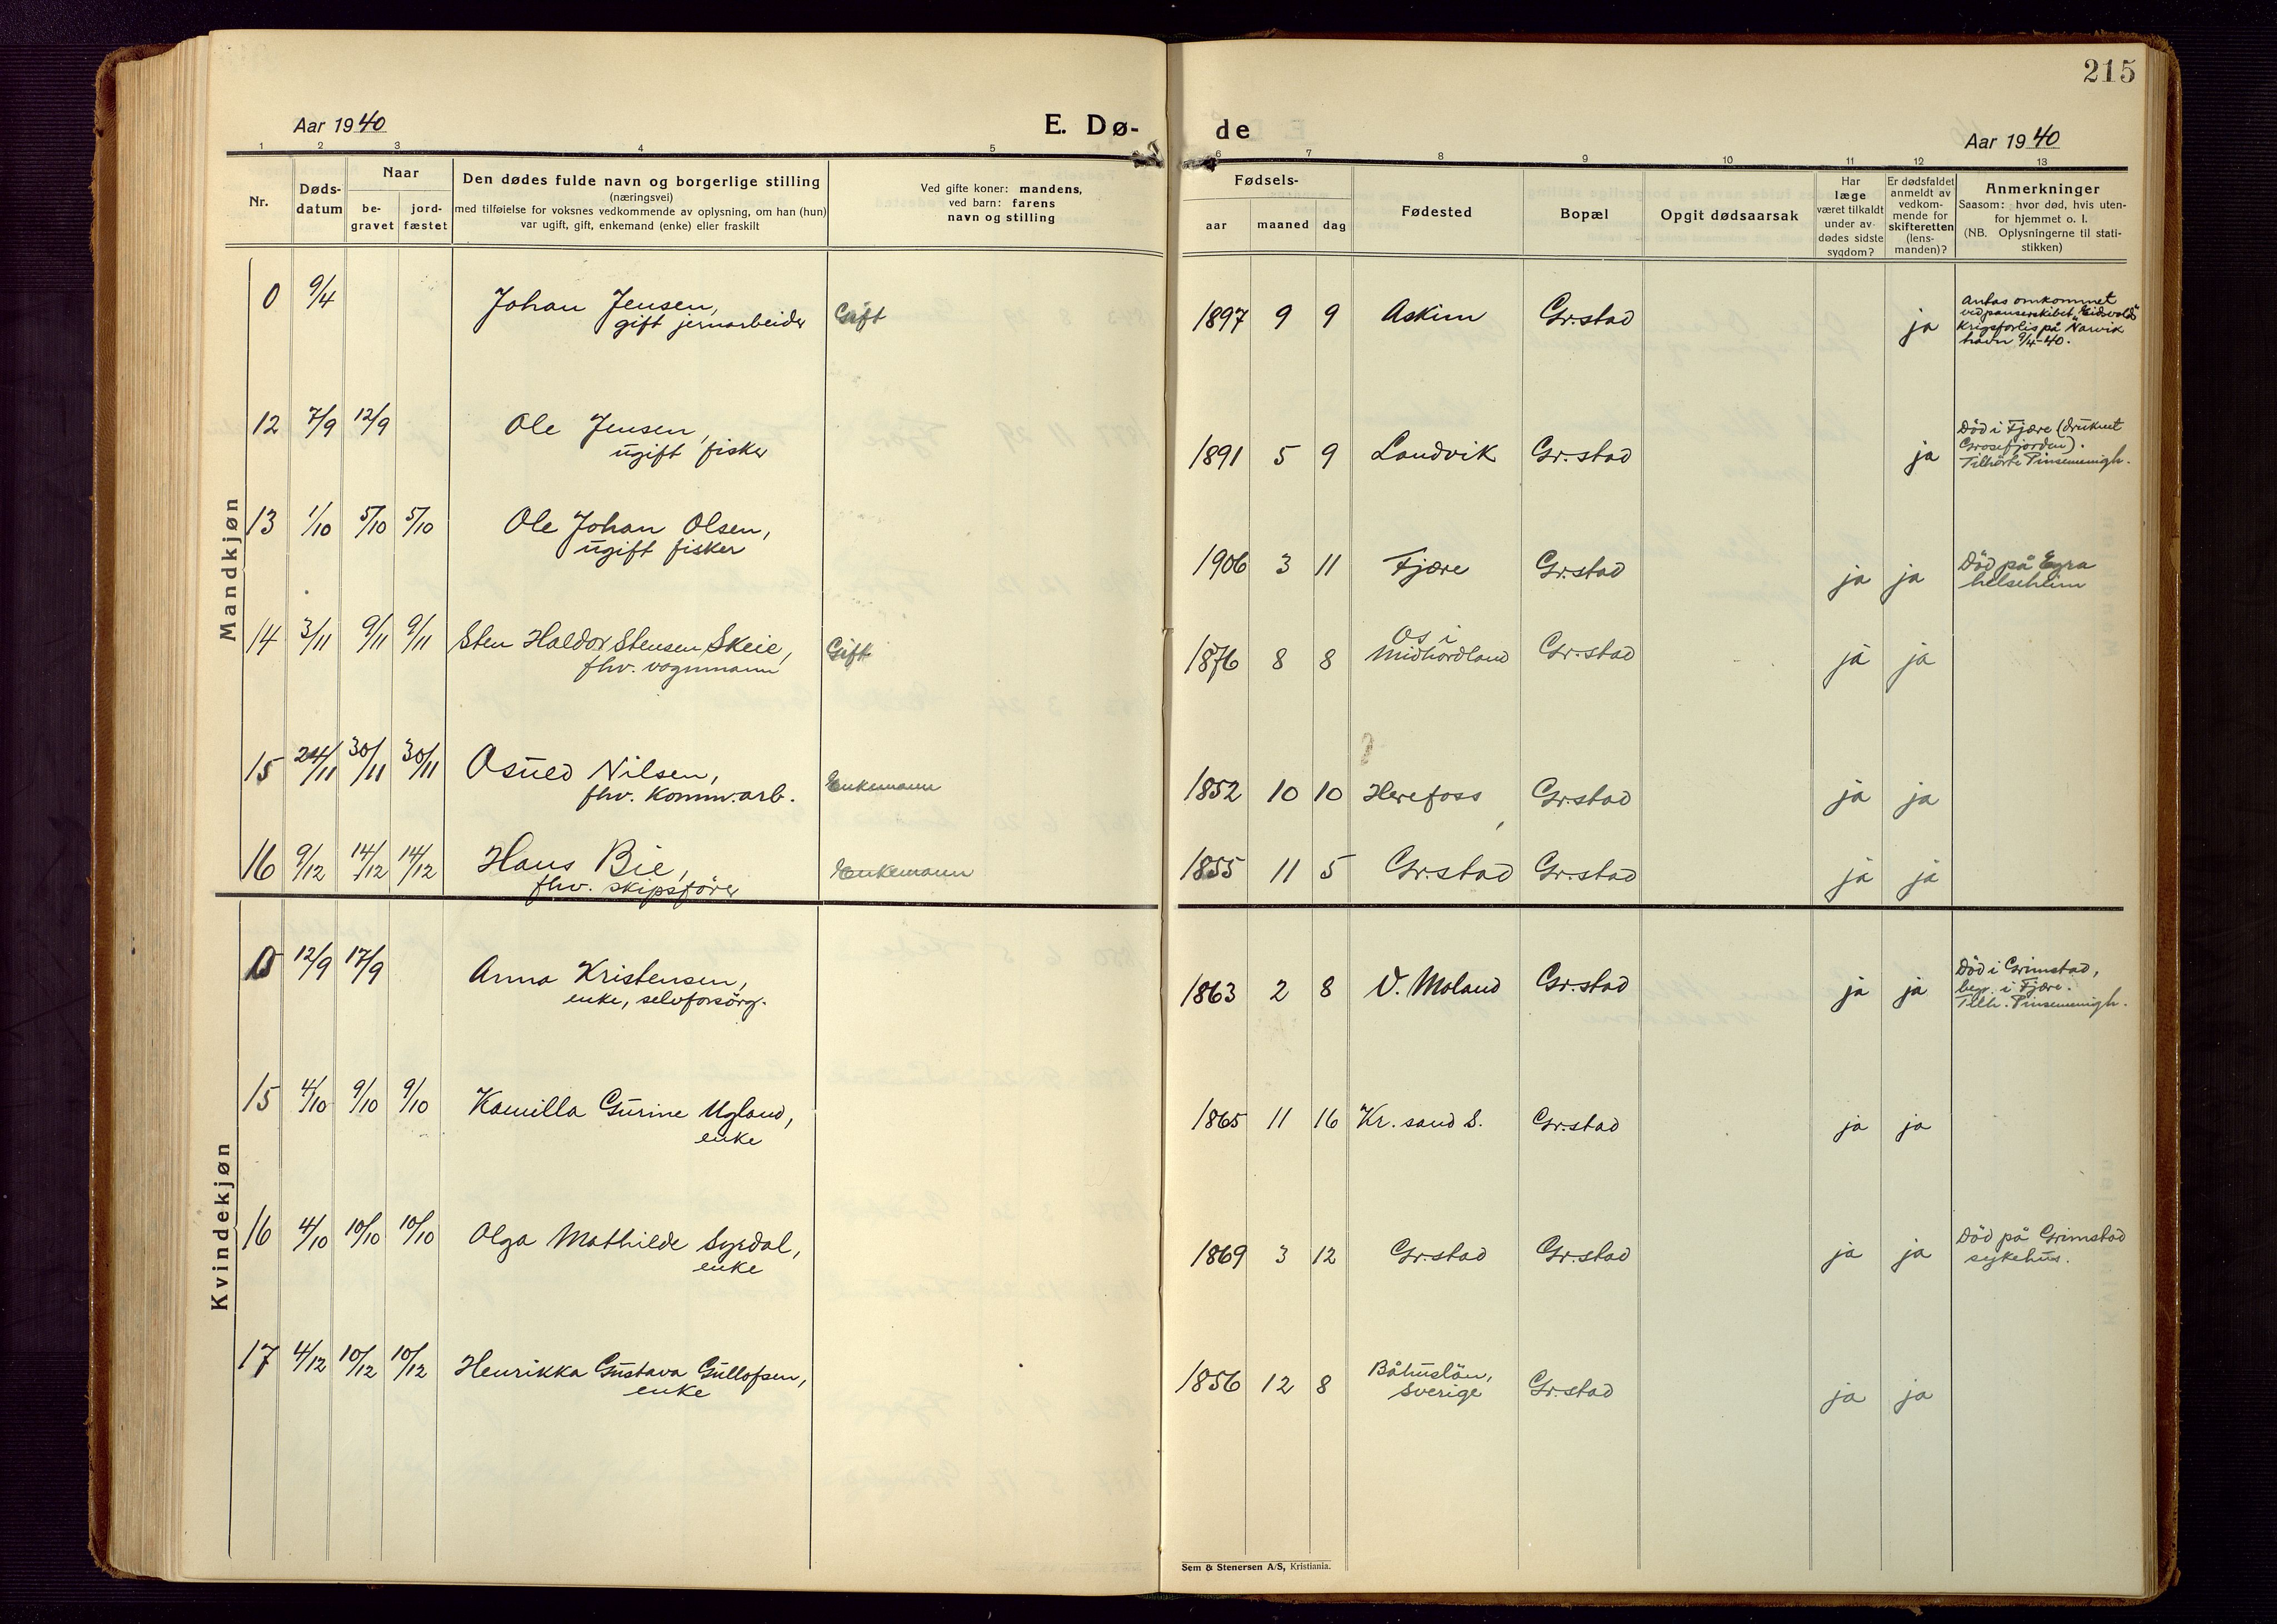 215
Aar 1940
E. Dø-
de
Aar 1940
1 2 3 4 5 6 7 8 9 10 11 12 13
Nr.
Døds-
datum
Naar
be-
gravet
jord-
fæstet
Den dødes fulde navn og borgerlige stilling
(næringsvei)
med tilføielse for voksnes vedkommende av oplysning, om han (hun)
var ugift, gift, enkemand (enke) eller fraskilt
Ved gifte koner: mandens,
ved barn: farens
navn og stilling
Fødsels-
aar maaned dag
Fødested
Bopæl
Opgit dødsaarsak
Har
læge
været tilkaldt
under av-
dødes sidste
sygdom?
Er dødsfaldet
anmeldt av
vedkom-
mende for
skifteretten
(lens-
manden)?
Anmerkninger
Saasom: hvor død, hvis uten-
for hjemmet o. l.
(NB. Oplysningerne til stati-
stikken)
Mandkjøn
0 9/4 Johan Jensen, Gift 1897 9 9 Askim Gr.stad ja
gift jernarbeider
Antas omkommet
ved panserskibet "Eidsvold's"
krigsforlis på Narvik
havn 9/4-40.
12 7/9 12/9 Ole Jensen, 1891 5 9 Landvik Gr.stad ja
ugift fisker
Död i Fjære (druknet
Grosefjorden).
Tilhörte Pinsemenigh.
13 1/10 5/10 5/10 Ole Johan Olsen, 1906 3 11 Fjære Gr.stad ja ja
ugift fisker
Död på Eyra
helseheim
14 3/11 9/11 9/11 Sten Haldor Stensen Skeie, Gift 1876 8 8 Os i
Midhordland Gr.stad ja ja
fhv. vognmann
15 24/11 30/11 30/11 Osued Nilsen, Enkemann 1852 10 10 Herefoss Gr.stad ja ja
fhv. komm.arb.
16 9/12 14/12 14/12 Hans Bie, Enkemann 1855 11 5 Gr.stad Gr.stad ja ja
fhv. skipsförer
Kvindekjøn
0 12/9 17/9 Anna Kristensen, 1863 2 8 V. Moland Gr.stad ja ja
enke, selvforsörg.
Död i Grimstad,
begr. i Fjære.
Tilh. Pinsemenigh.
15 4/10 9/10 9/10 Kamilla Gurine Ugland, 1865 11 16 Kr.sand S. Gr.stad ja ja
enke
16 4/10 10/10 10/10 Olga Mathilde Syrdal, 1869 3 12 Gr.stad Gr.stad ja ja
enke
Död på Grimstad
sykehus.
17 4/12 10/12 10/12 Henrikka Gustava Gullofsen, 1856 12 8 Båhuslän,
Sverige Gr.stad ja ja
enke
Sem & Stenersen A/S, Kristiania.